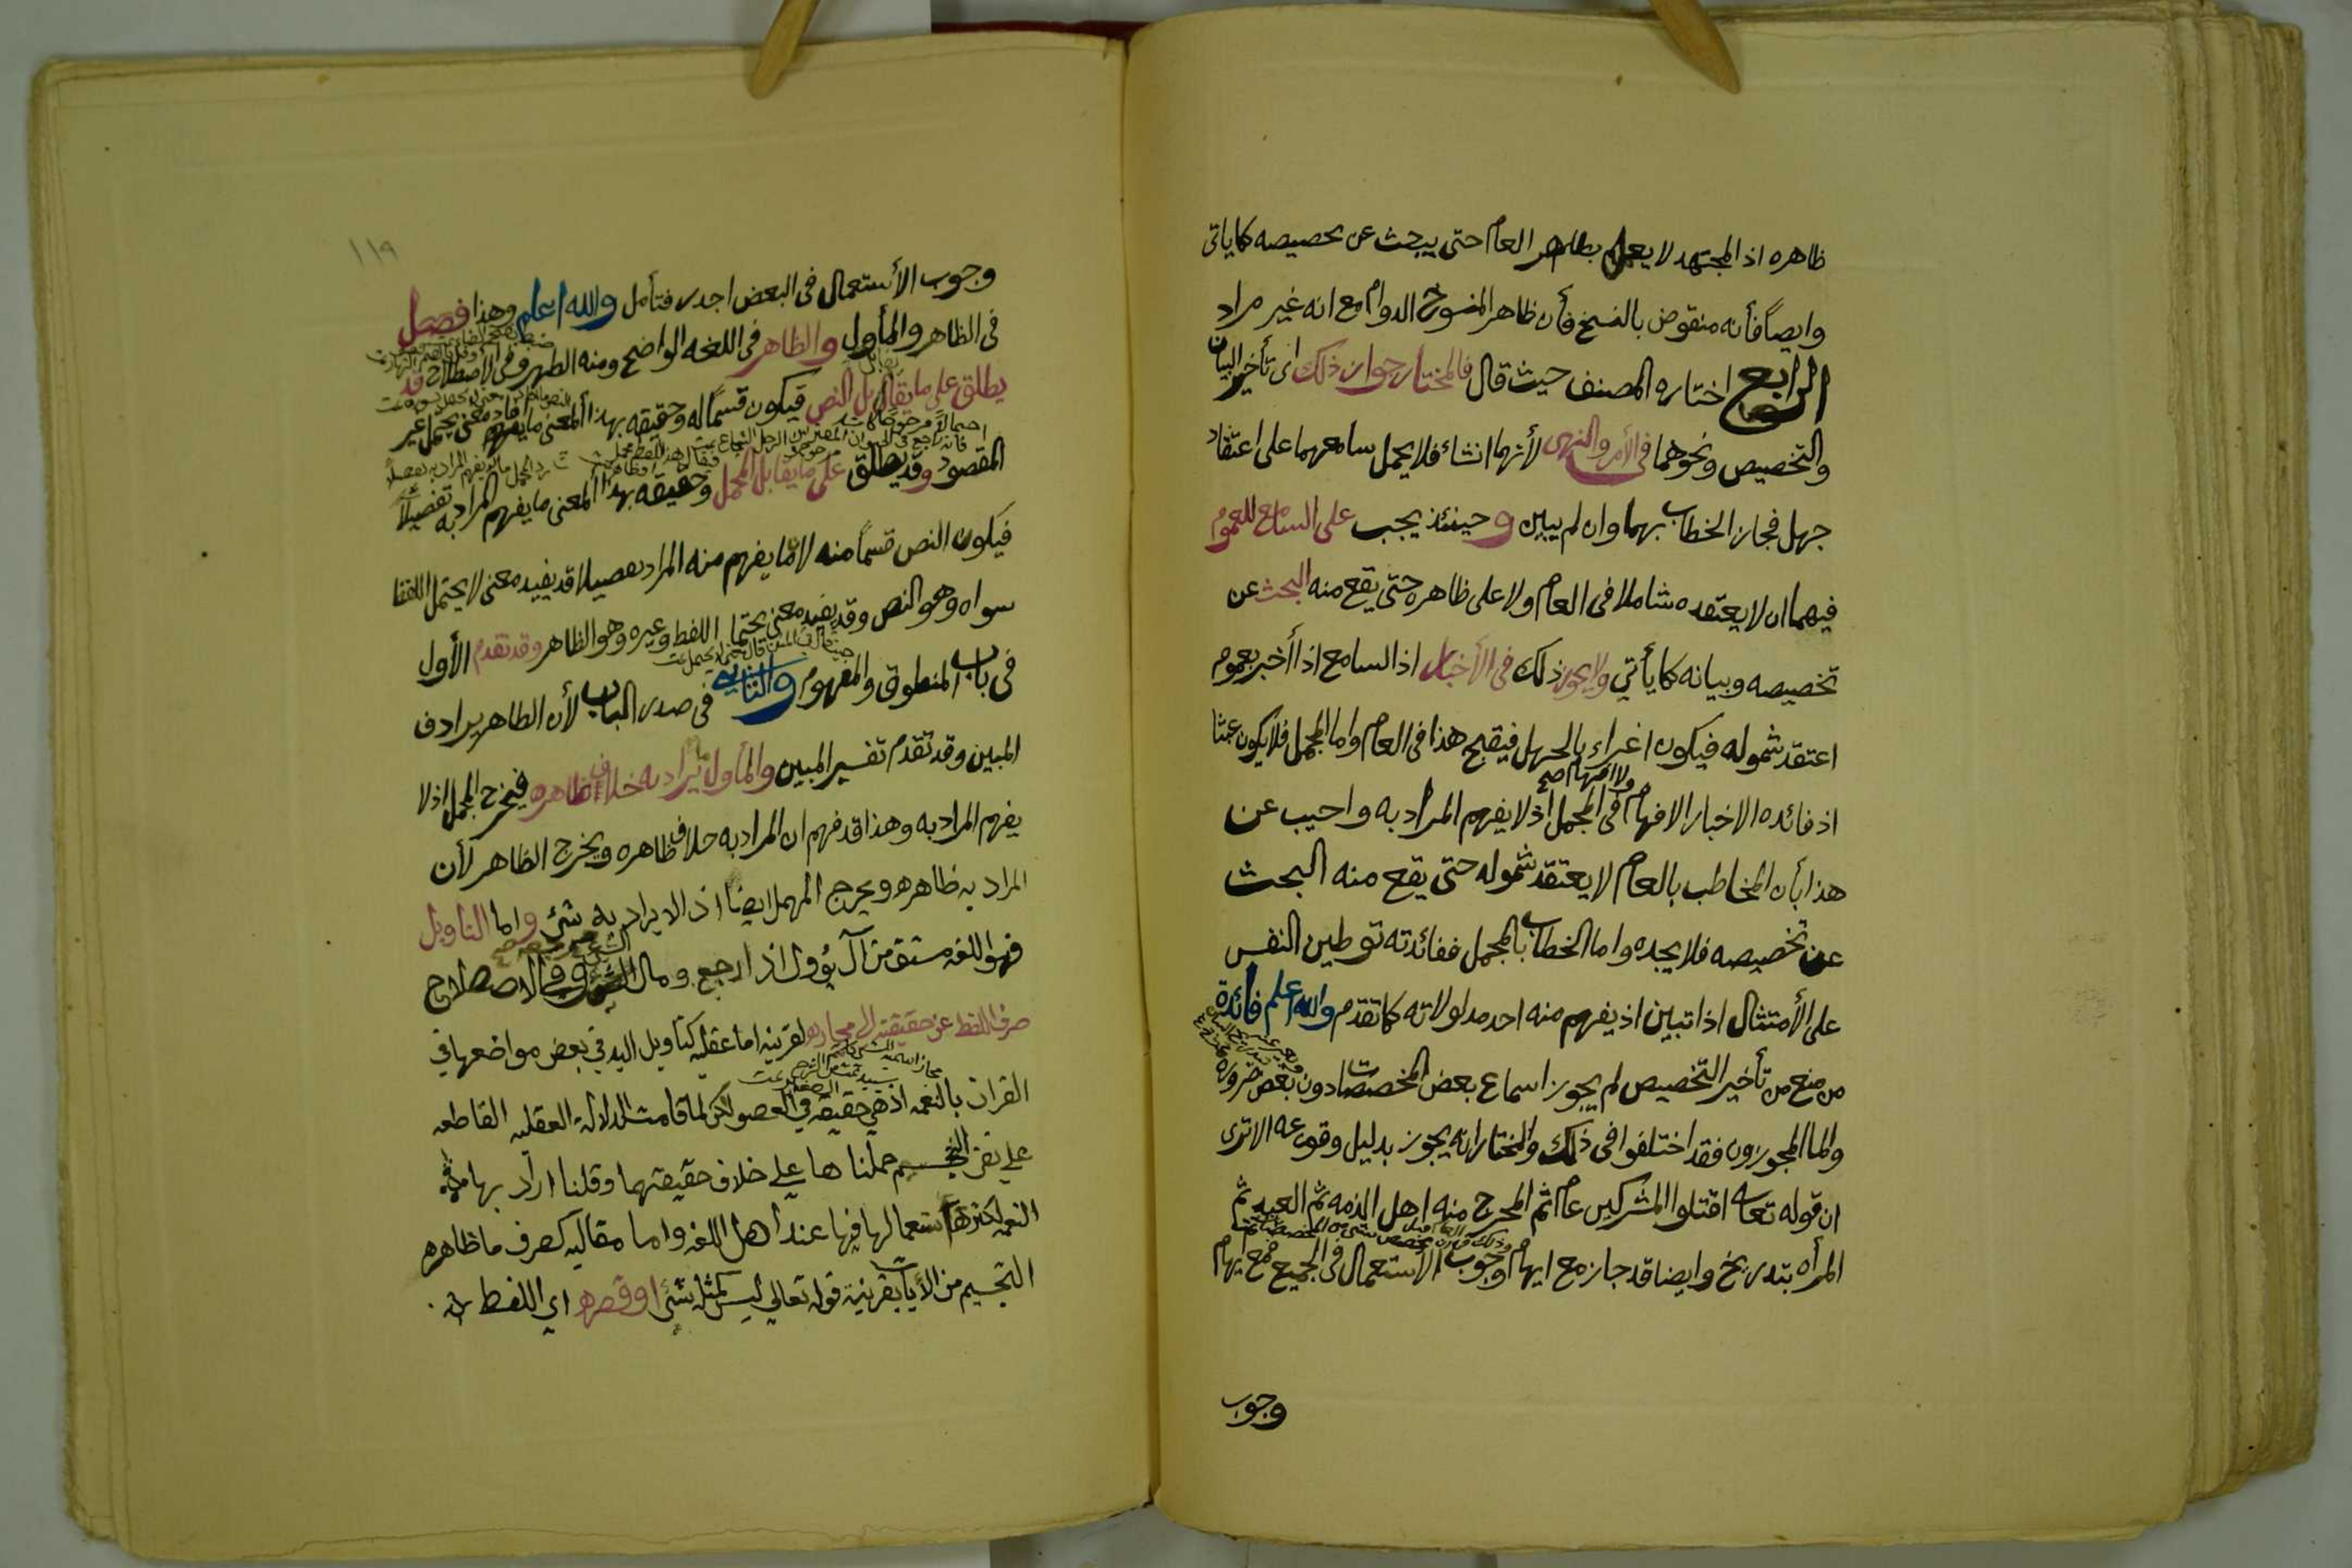 ظاهره اذ المجتهد لا يعمل بظاهر العام حتى يبحث عن تخصيصه كما ياتى
وايضاً فأنه منقوض بالنسخ فأن ظاهر المنسوخ الدوام مع انه غير مراد
الرابع اختاره المصنف حيث قال فالمختار جواز ذلك اى تأخير البيان
والتخصيص ونحوهما فى الأمر والنهى لأنهما انشاء فلا يحمل سامعهما على اعتقاد
جهل فجاز الخطاب بهما وان لم يبين وحينئذ يجب على السامع للعموم
فيهما ان لا يعتقده شاملا فى العام ولا على ظاهره حتى يقع منه البحث عن
تخصيصه وبيانه كما يأتي ولا يجوز ذلك فى الأخبار اذ السامع اذا أخبر بعموم
اعتقد شموله فيكون اغراء بالجهل فيقبح هذا فى العام واما المجمل فلا يكون عبثا
ولا افهام صح
اذ فائده الاخبار الافهام فى المجمل اذ لا يفهم المراد به واجيب عن
هذا بأن المخاطب بالعام لا يعتقد شموله حتى يقع منه البحث
عن تخصيصه فلا يجده واما الخطاب بالمجمل ففائدته توطين النفس
على الأمتثال اذا تبين اذ يفهم منه احد مدلولاته كما تقدم والله اعلم فائدة
من منع من تأخير التخصيص لم يجوز اسماع بعض المخصصات دون بعض ضرورة
واما المجوزون فقد اختلفوا فى ذلك والمختار انه يجوز بدليل وقوعه الا ترى
ان قوله تعالى اقتلوا المشركين عام ثم اخرج منه اهل الذمه ثم العبد ثم
المرأه بتدريج وايضا قد جاز مع ايهام وجوب الأستعمال فى الجميع فمع ايهام
وجوب
١١٩
وجوب الأستعمال فى البعض اجدر فتأمل والله اعلم وهذا فصل
فى الظاهر والمأول والظاهر فى اللغه الواضح ومنه الظهر وفى الأصطلاح قد
يطلق على ما يقابل النص فيكون قسمًا له وحقيقه بهذا المعنى ما يفهم معنى يحتمل غير
المقصود وقد يطلق على ما يقابل المجمل وحقيقه بهذا المعنى ما يفهم المراد به تفصيلاً
فيكون النص قسمًا منه لأن ما يفهم منه المراد تفصيلا قد يفيد معنى لا يحتمل اللفظ
سواه وهو النص وقد يفيد معنى يحتمل اللفظ وغيره وهو الظاهر وقد تقدم الأول
فى باب المنطوق والمفهوم والثاني فى صدر الباب لأن الظاهر يرادف
المبين وقد تقدم تفسير المبين والمأول ما يراد به خلاف ظاهره فيخرج المجمل اذ لا
يفهم المراد به وهذا قد فهم ان المراد به خلاف ظاهره ويخرج الظاهر لأن
المراد به ظاهره ويخرج المهمل ايضا اذ لا يراد به شئ واما التاويل
فهو اللغه مشتق من آل يؤول اذا رجع ومال الشئ وفى الاصطلاح
صرف اللفظ عن حقيقته الى مجازه لقرينه اما عقليه كتاويل اليد فى بعض مواضعها فى
القران بالنعمه اذ هي حقيقه في العضو لكن لما قامت الدلالة العقليه القاطعه
على نفي التجسيم حملناها على خلاف حقيقتها وقلنا اراد بها
النعمه لكثرة استعمالها فيها عند اهل اللغه واما مقاليه كصرف ما ظاهره
التجسيم من الأيات بقرينة قوله تعالى ليس كمثله شئ او قصره اي اللفظ